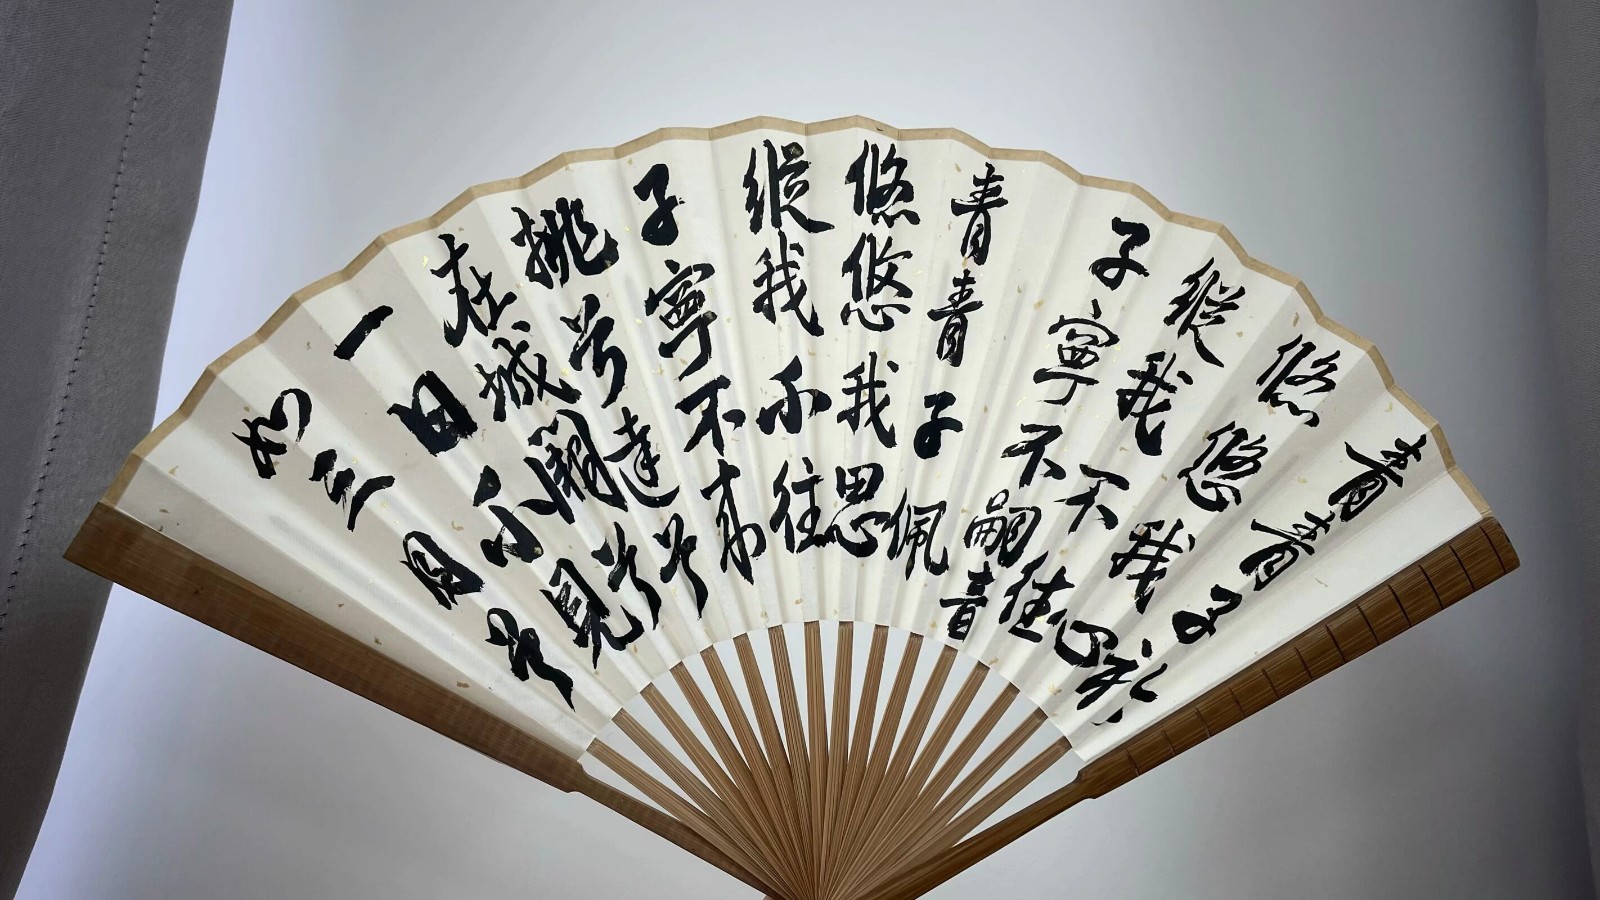 青青子衿
悠悠我心
纵我不往
子寧不嗣音
青青子佩
悠悠我思
縱我不往
子寧不來
挑兮達兮
在城闕兮
一日不見
如三月兮